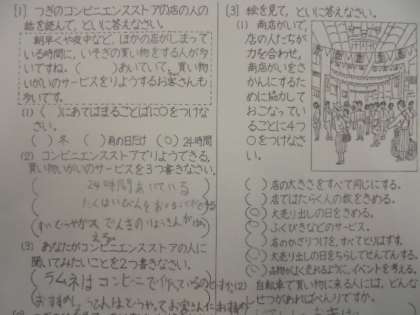 [1] つぎのコンビニエンスストアの店の人の
話を読んで、といに答えなさい。
朝早くや夜中など、ほかの店がしまって
いる時間に、いそぎの買い物をする人が多
いですね。( )あいていて、買い物
いがいのサービスをりようするお客さんも
多いです。
(1) ( )にあてはまることばに○をつけな
さい。
( )冬 ( )雨の日だけ (○)24時間
(2) コンビニエンスストアでりようできる、
買い物いがいのサービスを3つ書きなさい。
24時間あいている
(3) あなたがコンビニエンスストアの人に
聞いてみたいことを2つ書きなさい。
ラムネはコンビニで
[3] 絵を見て、といに答えなさい。
(1) 商店がいで、
店の人たちが
力を合わせ、
商店がいをさ
かんにするため
に協力して
おこなってい
ることに4つ
○をつけなさ
い。
( )店の大きさをすべて同じにする。
( )店ではたらく人の数をきめる。
(○)大売り出しの日をきめる。
( )ふくびきなどのサービス。
( )店のかざりつけを、すべてとりはずす。
( )大売り出しの日をちらしでせんでんする。
( )品物がよく売れるように、イベントを考える。
(2) 自転車で買い物に来る人には、どんな
せつがあればべんりですか。